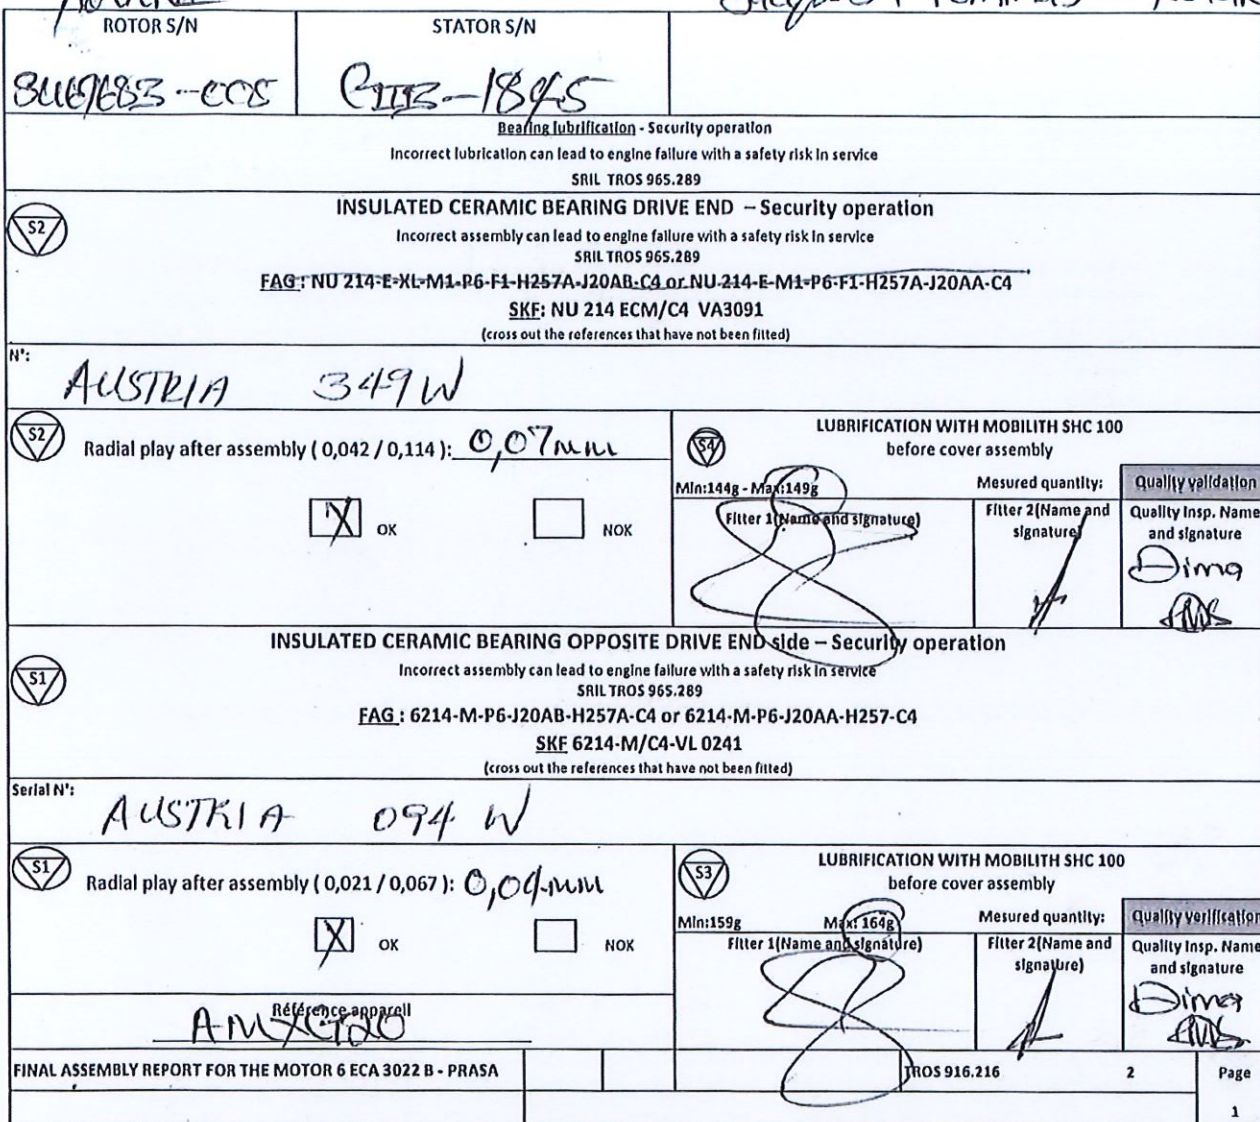 ROTOR S/N
STATOR S/N
Bearing lubrification - Security operation
Incorrect lubrication can lead to engine failure with a safety risk in service
SRIL TROS 965.289
S2
INSULATED CERAMIC BEARING DRIVE END – Security operation
Incorrect assembly can lead to engine failure with a safety risk in service
SRIL TROS 965.289
FAG : NU 214-E-XL-M1-P6-F1-H257A-J20AB-C4 or NU 214-E-M1-P6-F1-H257A-J20AA-C4
SKF: NU 214 ECM/C4 VA3091
(cross out the references that have not been fitted)
N°:
AUSTRIA 349W
S2
Radial play after assembly ( 0,042 / 0,114 ): 0,07mm
X OK
NOK
S4
LUBRIFICATION WITH MOBILITH SHC 100
before cover assembly
Min:144g - Max:149g
Mesured quantity:
Quality validation
Fitter 1(Name and signature)
Fitter 2(Name and signature)
Quality Insp. Name and signature
Dima
INSULATED CERAMIC BEARING OPPOSITE DRIVE END side – Security operation
S1
Incorrect assembly can lead to engine failure with a safety risk in service
SRIL TROS 965.289
FAG : 6214-M-P6-J20AB-H257A-C4 or 6214-M-P6-J20AA-H257-C4
SKF 6214-M/C4-VL 0241
(cross out the references that have not been fitted)
Serial N°:
AUSTRIA 094 W
S1
Radial play after assembly ( 0,021 / 0,067 ): 0,04mm
X OK
NOK
Référence appareil
S3
LUBRIFICATION WITH MOBILITH SHC 100
before cover assembly
Min:159g Max: 164g
Mesured quantity:
Quality verification
Fitter 1(Name and signature)
Fitter 2(Name and signature)
Quality Insp. Name and signature
Dima
FINAL ASSEMBLY REPORT FOR THE MOTOR 6 ECA 3022 B - PRASA
TROS 916.216
2
Page
1